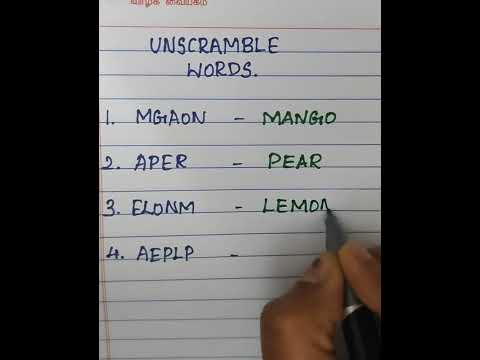 வாழ்க வையகம்
UNSCRAMBLE
WORDS.
1. MGAON - MANGO
2. APER - PEAR
3. ELONM - LEMON
4. AEPLP -